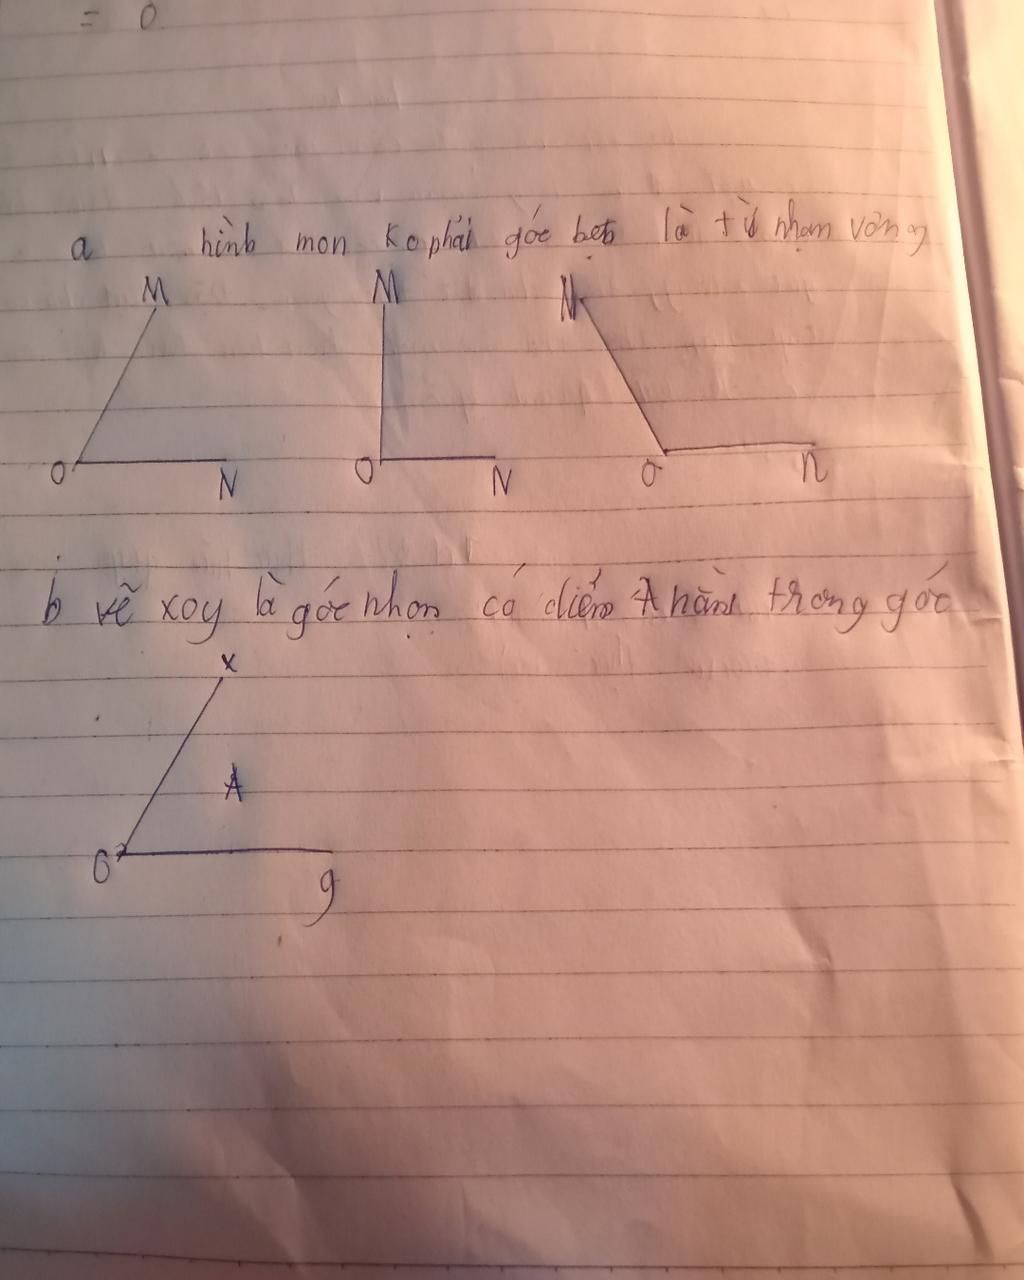 = 0
a hình mon ko phải góc bẹt là tù nhọn vuông
M M M
O N O N O n
b vẽ xoy là góc nhọn có điểm A nằm trong góc
x
A
O y